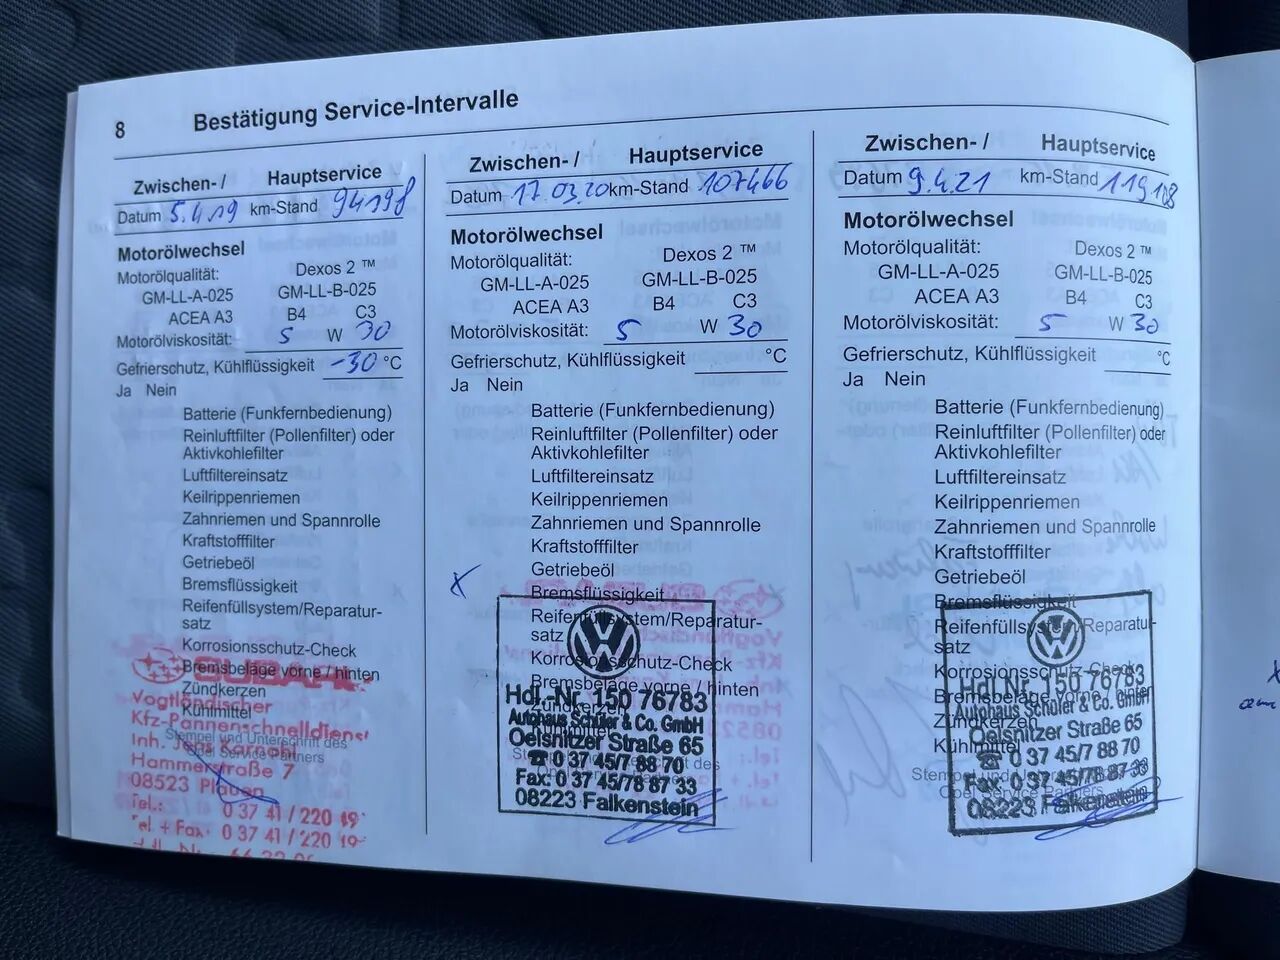 8 Bestätigung Service-Intervalle
Zwischen- / Hauptservice
Datum 5.4.19 km-Stand 94198
Motorölwechsel
Motorölqualität: Dexos 2 ™
GM-LL-A-025 GM-LL-B-025
ACEA A3 B4 C3
Motorölviskosität: 5 W 30
Gefrierschutz, Kühlflüssigkeit -30 °C
Ja Nein
Batterie (Funkfernbedienung)
Reinluftfilter (Pollenfilter) oder
Aktivkohlefilter
Luftfiltereinsatz
Keilrippenriemen
Zahnriemen und Spannrolle
Kraftstofffilter
Getriebeöl
Bremsflüssigkeit
Reifenfüllsystem/Reparatur-
satz
Korrosionsschutz-Check
Bremsbeläge vorne / hinten
Zündkerzen
Kühlmittel
Stempel und Unterschrift des
Opel Service Partners
SUBARU
Vogtländischer
Kfz-Pannenschnelldienst
Inh. Jens Karnahl
Hammerstraße 7
08523 Plauen
Tel.: 0 37 41 / 220 19
Tel + Fax: 0 37 41 / 220 19
Zwischen- / Hauptservice
Datum 17.03.20 km-Stand 107466
Motorölwechsel
Motorölqualität: Dexos 2 ™
GM-LL-A-025 GM-LL-B-025
ACEA A3 B4 C3
Motorölviskosität: 5 W 30
Gefrierschutz, Kühlflüssigkeit °C
Ja Nein
Batterie (Funkfernbedienung)
Reinluftfilter (Pollenfilter) oder
Aktivkohlefilter
Luftfiltereinsatz
Keilrippenriemen
Zahnriemen und Spannrolle
Kraftstofffilter
Getriebeöl
x Bremsflüssigkeit
Reifenfüllsystem/Reparatur-
satz
Korrosionsschutz-Check
Bremsbeläge vorne / hinten
Zündkerzen
Kühlmittel
Stempel und Unterschrift des
Opel Service Partners
VW
Hdl.-Nr. 150 76783
Autohaus Schüler & Co. GmbH
Oelsnitzer Straße 65
☎ 0 37 45/7 88 70
Fax: 0 37 45/78 87 33
08223 Falkenstein
Zwischen- / Hauptservice
Datum 9.4.21 km-Stand 119108
Motorölwechsel
Motorölqualität: Dexos 2 ™
GM-LL-A-025 GM-LL-B-025
ACEA A3 B4 C3
Motorölviskosität: 5 W 30
Gefrierschutz, Kühlflüssigkeit °C
Ja Nein
Batterie (Funkfernbedienung)
Reinluftfilter (Pollenfilter) oder
Aktivkohlefilter
Luftfiltereinsatz
Keilrippenriemen
Zahnriemen und Spannrolle
Kraftstofffilter
Getriebeöl
Bremsflüssigkeit
Reifenfüllsystem/Reparatur-
satz
Korrosionsschutz-Check
Bremsbeläge vorne / hinten
Zündkerzen
Kühlmittel
Stempel und Unterschrift des
Opel Service Partners
VW
Hdl.-Nr. 150 76783
Autohaus Schüler & Co. GmbH
Oelsnitzer Straße 65
☎ 0 37 45/7 88 70
Fax: 0 37 45/78 87 33
08223 Falkenstein